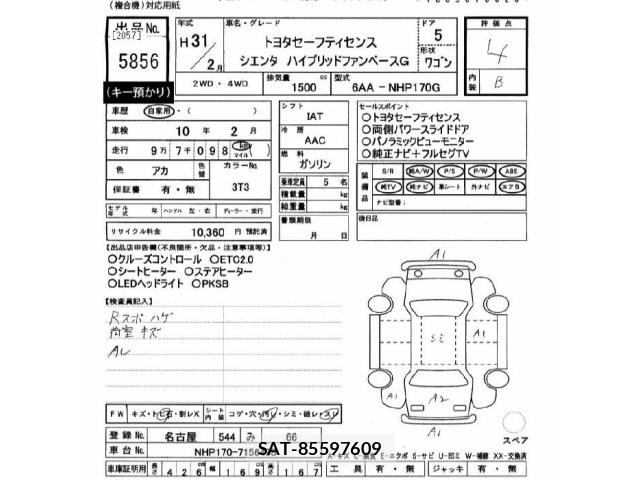 (複合機)対応用紙
出品No.
[2057]
5856
(キー預かり)
年式
H31/2月
車名・グレード
トヨタセーフティセンス
シエンタ ハイブリッドファンベースG
ドア
5
形状
ワゴン
評価点
4
内装
B
2WD・4WD
排気量
1500
cc
型式
6AA - NHP170G
車歴
自家用・( )
車検
10年 2月
走行
9万7千098
km
マイル
色
アカ
色替
カラーNo.
3T3
保証書
有・無
モデル年式
年
ハンドル
左・右
ディーラー・並行
リサイクル料金
10,360 円 預託済
シフト
IAT
冷房
AAC
燃料
ガソリン
乗車定員
5 名
積載量
kg
総重量
kg
書類期限
月 日
セールスポイント
○トヨタセーフティセンス
○両側パワースライドドア
○パノラミックビューモニター
○純正ナビ+フルセグTV
装備品
S/R
純A/W
P/S
P/W
ABS
純TV
純ナビ
革シート
外ナビ
エアB
ナビ型番:
後日品
【出品店申告欄(不良箇所・欠品・注意事項等)】
○クルーズコントロール ○ETC2.0
○シートヒーター ○ステアヒーター
○LEDヘッドライト ○PKSB
【検査員記入】
Rスポ ハゲ
荷室 キズ
AL
A1
A1
シミ
A1
A2
A1
スペア
FW
キズ・トビ石・割レX
シート内張
コゲ・穴・汚レ・シミ・破レ・スレ
登録No.
名古屋
544
み
66
車台No.
NHP170-7156
SAT-85597609
E-エクボ S-サビ U-凹ミ W-補修 XX-交換済
車庫証明用
長さ 426
幅 169
高さ 167
工具
有・無
ジャッキ
有・無